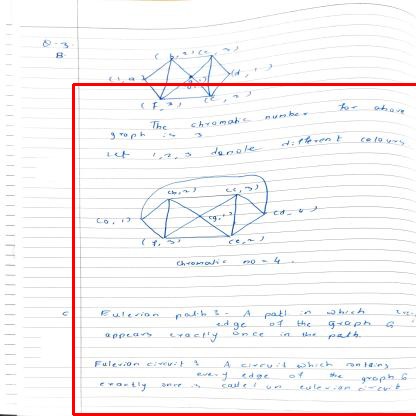 Q-3
B.
(b,2) (c,3)
(1,a) (g,1) (d,1)
(f,3) (e,2)
The chromatic number for above
graph is 3
Let 1,2,3 denote different colours
(b,2) (c,3)
(a,1) (g,1) (d,4)
(f,3) (e,2)
chromatic no = 4.
c Eulerian path :- A path in which
edge of the graph G
appears exactly once in the path.
Eulerian circuit : A circuit which contains
every edge of the graph G
exactly once is called an eulerian circuit